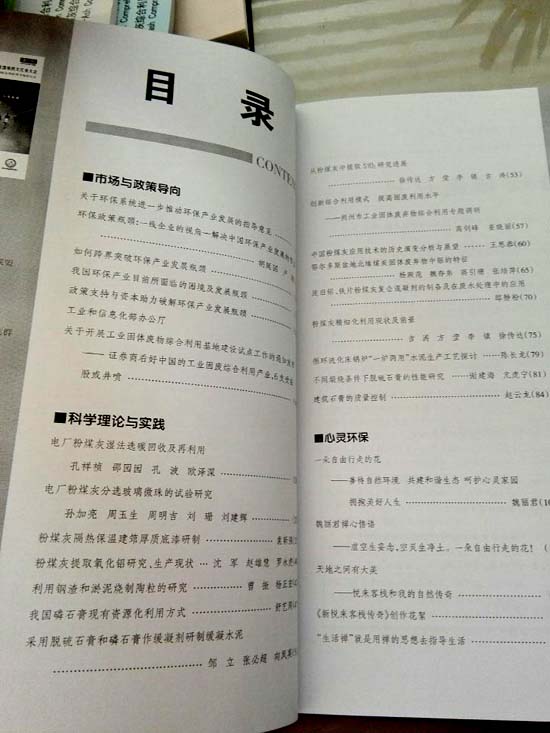 目 录
CONTEN
■市场与政策导向
关于环保系统进一步推动环保产业发展的指导意见
环保政策瓶颈:一线企业的视角—解决中国环保产业发展
如何跨界突破环保产业发展瓶颈
我国环保产业目前所面临的困境及发展瓶颈
政策支持与资本助力破解环保产业发展瓶颈
工业和信息化部办公厅
关于开展工业固体废物综合利用基地建设试点工作的通知
——证券商看好中国的工业固废综合利用产业,
股或井喷
■科学理论与实践
电厂粉煤灰湿法选碳回收及再利用
孔祥桢 邵园园 孔 波 欧泽深
电厂粉煤灰分选玻璃微珠的试验研究
孙加亮 周玉生 周明吉 刘 珊 刘建辉
粉煤灰隔热保温建筑厚质底漆研制
粉煤灰提取氧化铝研究、生产现状 沈 军 赵雄慧 罗水
利用钢渣和淤泥烧制陶粒的研究 曹 张 杨正宏
我国磷石膏现有资源化利用方式 舒艺周
采用脱硫石膏和磷石膏作缓凝剂研制缓凝水泥
邹 立 张必超 向凤英
从粉煤灰中提取SiO₂研究进展
徐传达 方 堂 李 镇 吉 涛(53)
创新综合利用模式 提高固废利用水平
——朔州市工业固体废弃物综合利用专题调研
高剑峰 姜晓丽(57)
中国粉煤灰应用技术的历史演变分析与展望 王恩泰(60)
鄂尔多斯盆地北缘煤炭固体废弃物中镓的特征
杨殿范 魏存弟 蒋引珊 张培萍(65)
废旧铝、铁片粉煤灰复合混凝剂的制备及在废水处理中的应用
粉煤灰精细化利用现状及前景
吉 涛 方 堂 李 镇 徐传达(75)
循环流化床锅炉"一炉两用"水泥生产工艺探讨 陈长龙(79)
不同煅烧条件下脱硫石膏的性能研究 谢建海 亢虎宁(81)
建筑石膏的质量控制 赵云龙(84)
■心灵环保
一朵自由行走的花
——善待自然环境 共建和谐生态 呵护心灵家园
拥抱美好人生 魏丽君
魏丽君禅心悟语
——虚空生妄念,空灭生净土。一朵自由行走的花!
天地之间有大美
——悦来客栈和我的自然传奇
《新悦来客栈传奇》创作花絮
"生活禅"就是用禅的思想去指导生活